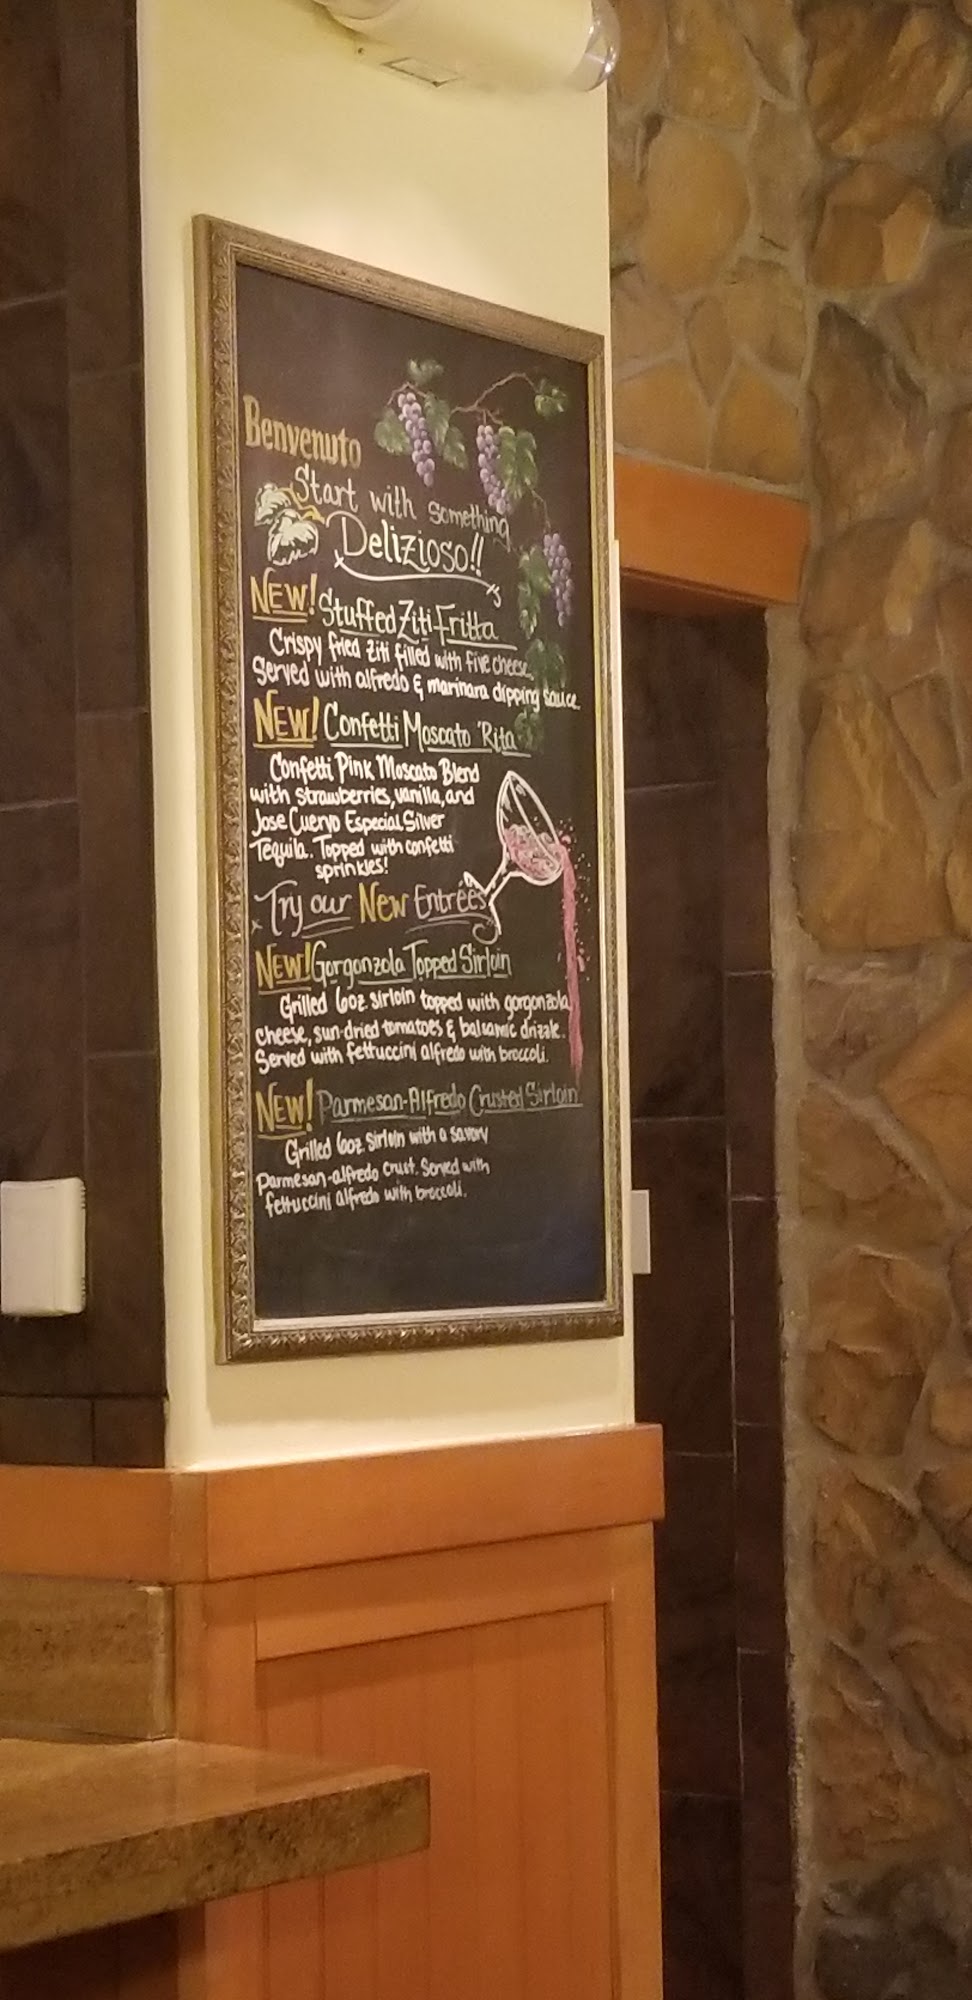 Benvenuto
Start with something
Delizioso!!
NEW! Stuffed Ziti Fritta
Crispy fried ziti filled with five cheese.
Served with alfredo & marinara dipping sauce.
NEW! Confetti Moscato 'Rita
Confetti Pink Moscato Blend
with strawberries, vanilla, and
Jose Cuervo Especial Silver
Tequila. Topped with confetti
sprinkles!
Try our New Entrées
NEW! Gorgonzola Topped Sirloin
Grilled 6oz sirloin topped with gorgonzola
cheese, sun-dried tomatoes & balsamic drizzle.
Served with fettuccini alfredo with broccoli.
NEW! Parmesan-Alfredo Crusted Sirloin
Grilled 6oz sirloin with a savory
parmesan-alfredo crust. Served with
fettuccini alfredo with broccoli.